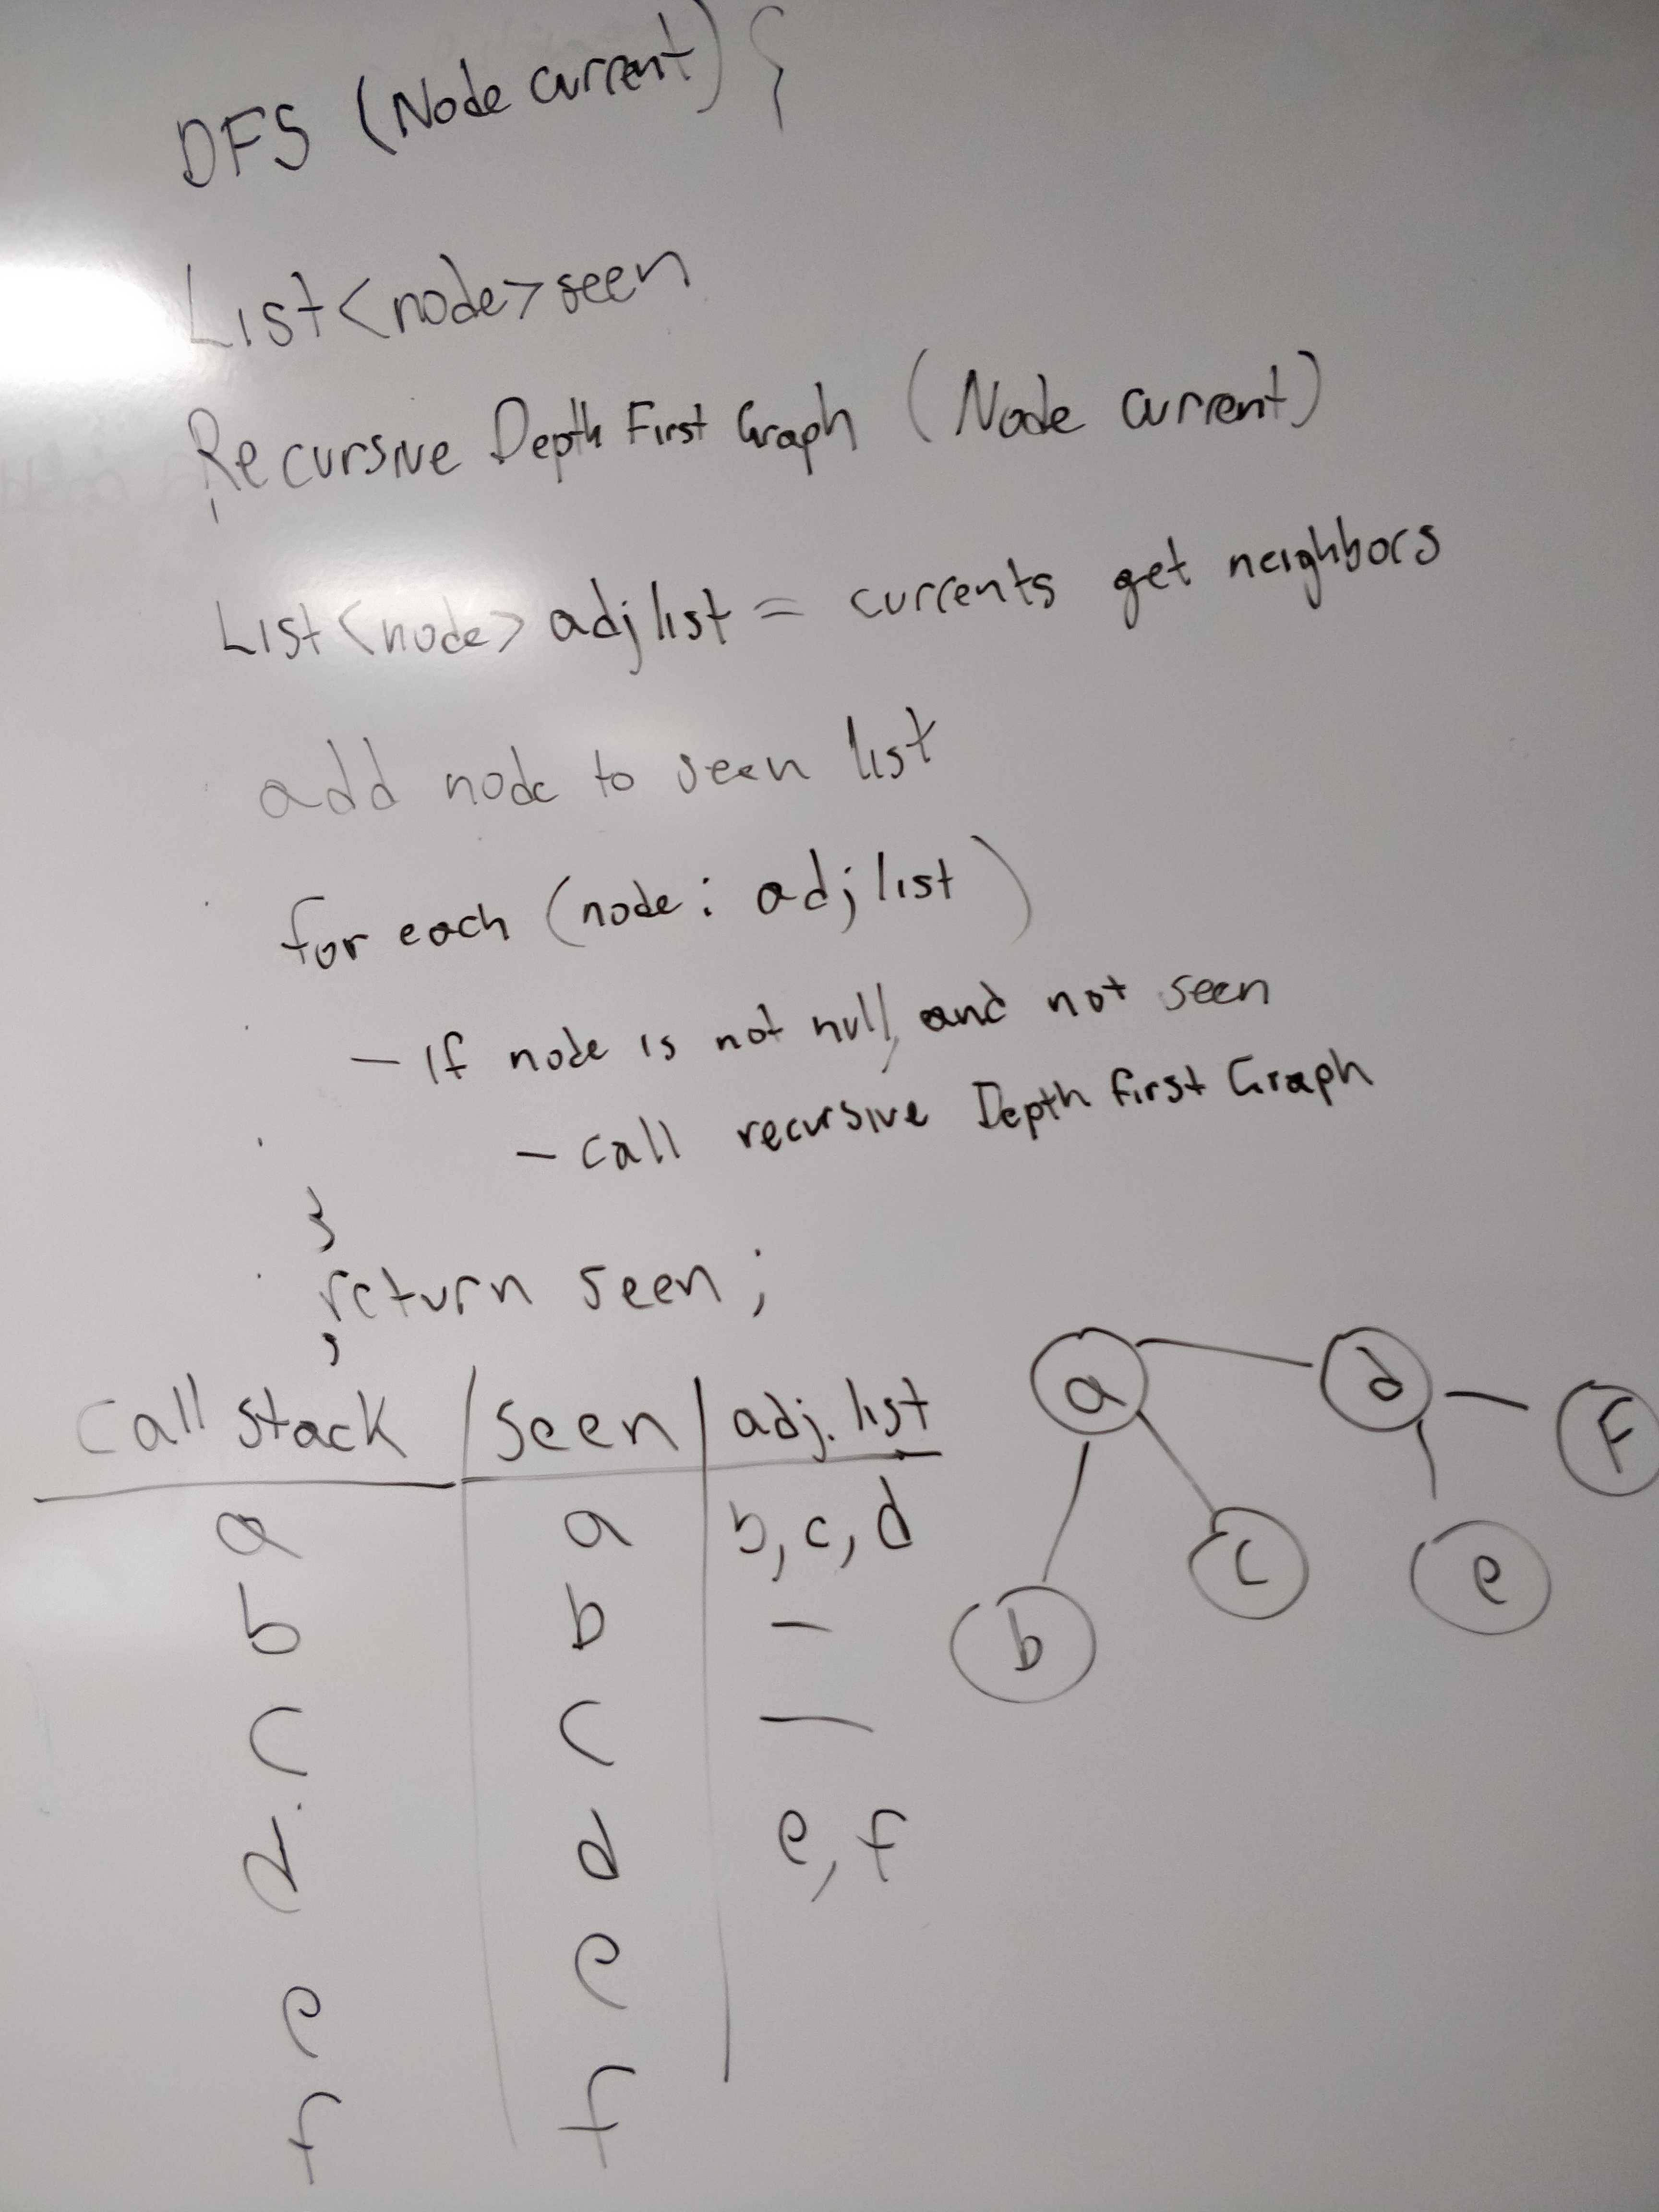 DFS (Node current) {
List<node> seen
Recursive Depth First Graph (Node current)
List<node> adj list = currents get neighbors
add node to seen list
for each (node : adj list)
- If node is not null, and not seen
- call recursive Depth first Graph
}
return seen;
}
Call stack | Seen | adj. list
a a b, c, d
b b —
c c —
d d e, f
e e
f f
a
d
F
b
c
e